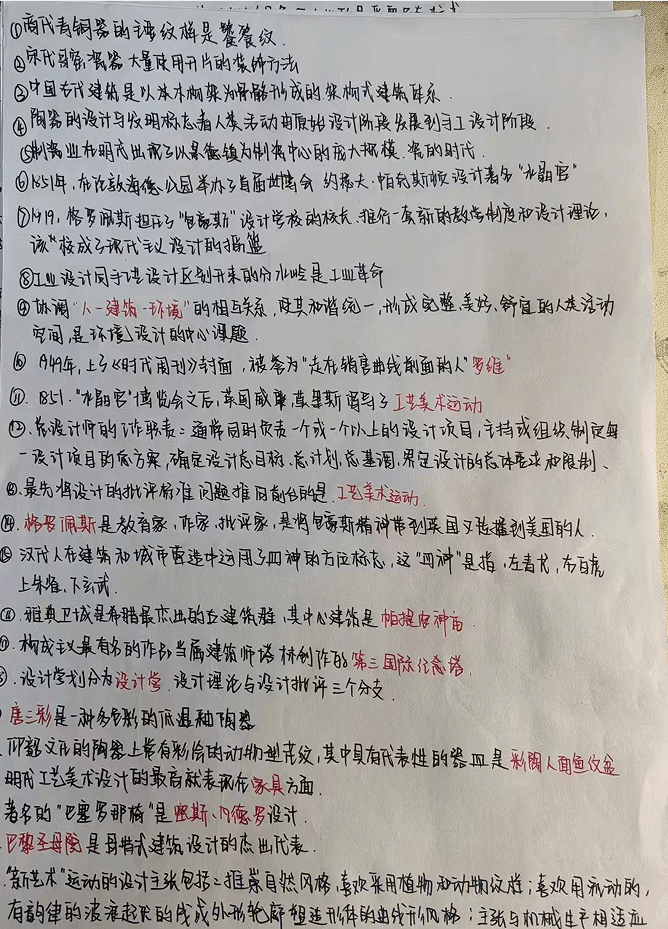 ①商代青铜器的主要纹样是饕餮纹.
②宋代哥窑瓷器大量使用开片的装饰方法
③中国古代建筑是以木构架为骨骼形成的架构式建筑体系.
④陶器的设计与发明标志着人类活动由原始设计阶段发展到手工设计阶段.
⑤制瓷业在明代出现了以景德镇为制瓷中心的庞大规模.瓷的时代.
⑥1851年,在伦敦海德公园举办了首届世博会 约瑟夫·帕克斯顿设计著名"水晶宫"
⑦1919,格罗佩斯担任了"包豪斯"设计学校的校长.推行一套新的教学制度和设计理论,
该"校成了现代主义设计的摇篮
⑧工业设计同手工艺设计区别开来的分水岭是工业革命
⑨协调"人一建筑一环境"的相互关系,使其和谐统一,形成完整、美好、舒宜的人类活动
空间,是环境设计的中心课题.
⑩ 1949年,上了《时代周刊》封面,被誉为"走在销售曲线前面的人"罗维"
⑪. 1851."水晶宫"博览会之后,英国威廉,莫里斯倡导了工艺美术运动
⑫.总设计师的工作职责:通常同时负责一个或一个以上的设计项目,主持或组织制定每
一设计项目的总方案,确定设计总目标.总计划,总基调.界定设计的总体要求和限制、
⑬.最先将设计的批评标准问题推向前台的是.工艺美术运动.
⑭.格罗佩斯是教育家,作家,批评家,是将包豪斯精神带到英国又传播到美国的人.
⑮汉代人在建筑和城市营造中运用了四神的方位标志,这"四神"是指,左青龙,右白虎
上朱雀,下玄武.
⑯.雅典卫城是希腊最杰出的古建筑群,其中心建筑是帕提农神庙.
⑰.构成主义最有名的作品当属建筑师塔林创作的第三国际纪念塔.
.设计学划分为设计学.设计理论与设计批评三个分支.
唐三彩是一种多色彩的低温釉陶器
仰韶文化的陶器上常有彩绘的动物型花纹,其中具有代表性的器皿是彩陶人面鱼纹盆
明代工艺美术设计的最高成就表现在家具方面.
著名的"巴塞罗那椅"是密斯、凡德罗设计.
巴黎圣母院是哥特式建筑设计的杰出代表.
"新艺术"运动的设计主张包括:推崇自然风格,喜欢采用植物和动物纹样;喜欢用流动的,
有韵律的波浪起伏的线或外形轮廓塑造形体的曲线形风格;主张与机械生产相适应